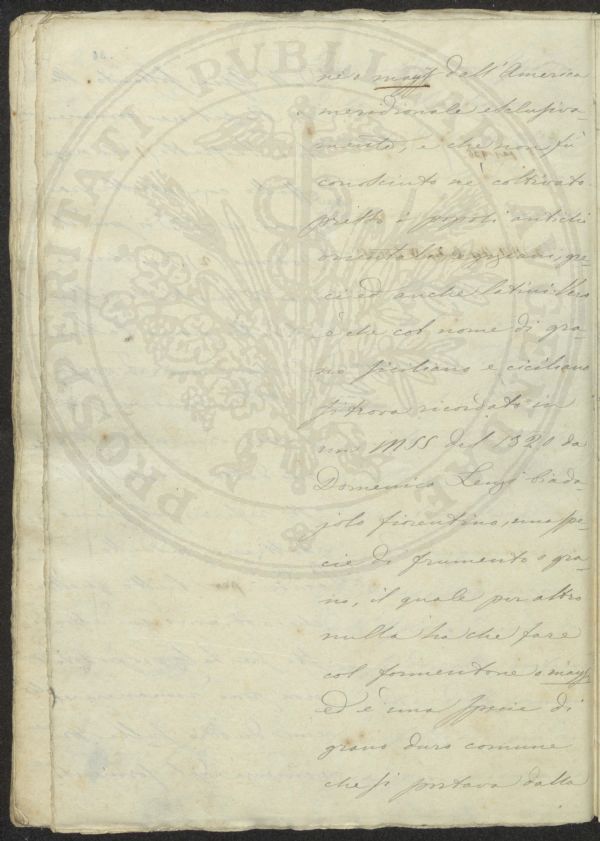 PROSPERITATI PUBLICAE AUGENDAE
ne o mays dell'America
meridionale esclusiva-
mente, e che non fù
conosciuto nè coltivato
presso i popoli antichi
orientali egiziani, gre-
ci ed anche latini. Vero
è che col nome di gra-
no siciliano e ciciliano
si trova ricordato in
un MSS del 1320 da
Domenico Lenzi biada-
jolo fiorentino, una spe-
cie di frumento o gra-
no, il quale per altro
nulla ha che fare
col formentone o mays,
ed è una specie di
grano duro comune
che si portava dalla